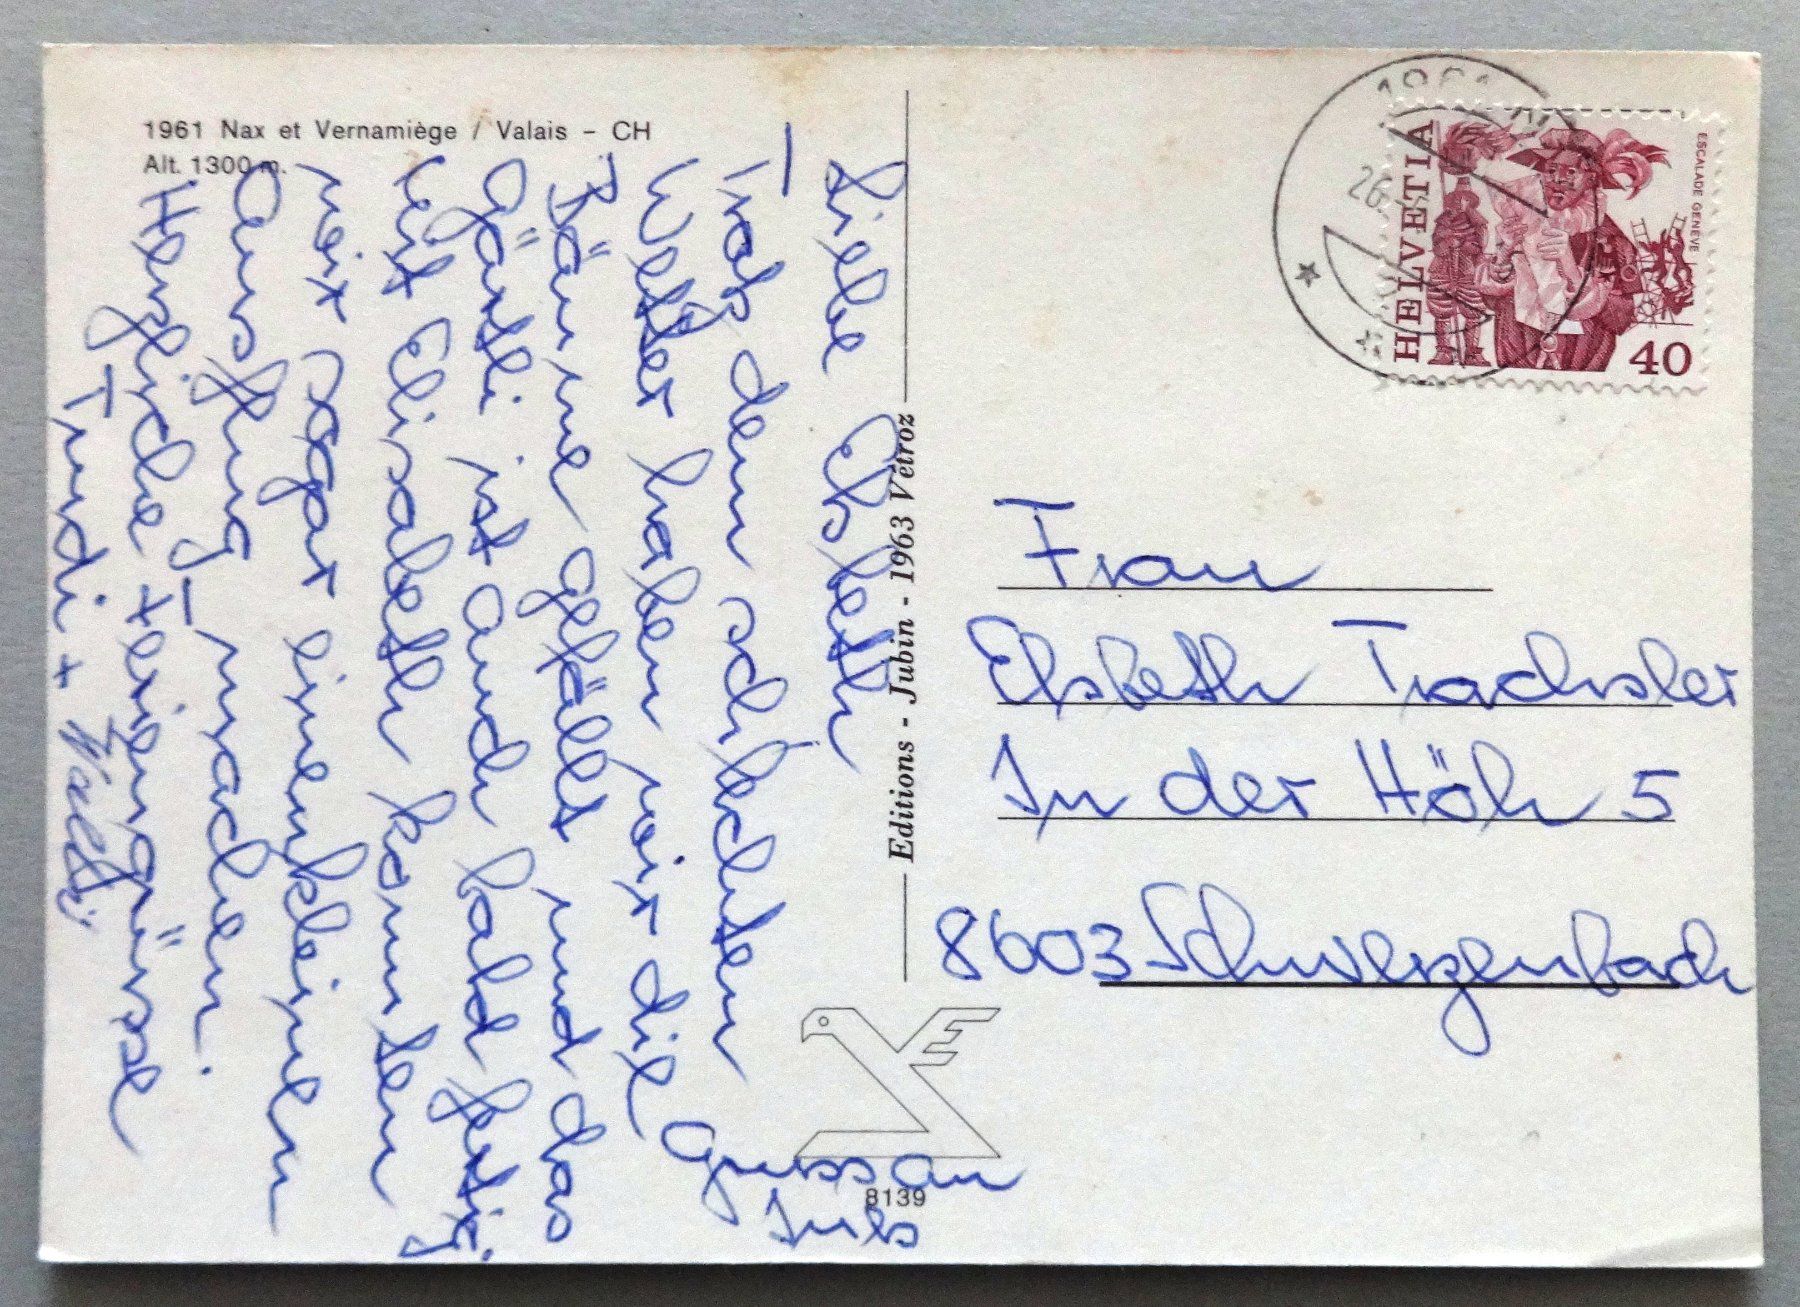 1961 Nax et Vernamiège / Valais – CH
Alt. 1300 m.
Liebe Elsbeth
Trotz dem schlechten
Wetter haben wir die
Bäume gefällt und das
Gärtli ist auch bald fertig
Mit Elisabeth konnten
wir sogar einen kleinen
Ausflug machen.
Herzliche Feriengrüsse
Trudi + Walti
Gruss an
Editions - Jubin - 1963 Vétroz
8139
1961
26.
HELVETIA
ESCALADE GENÈVE
40
Frau
Elsbeth Trachsler
In der Höh 5
8603 Schwerzenbach